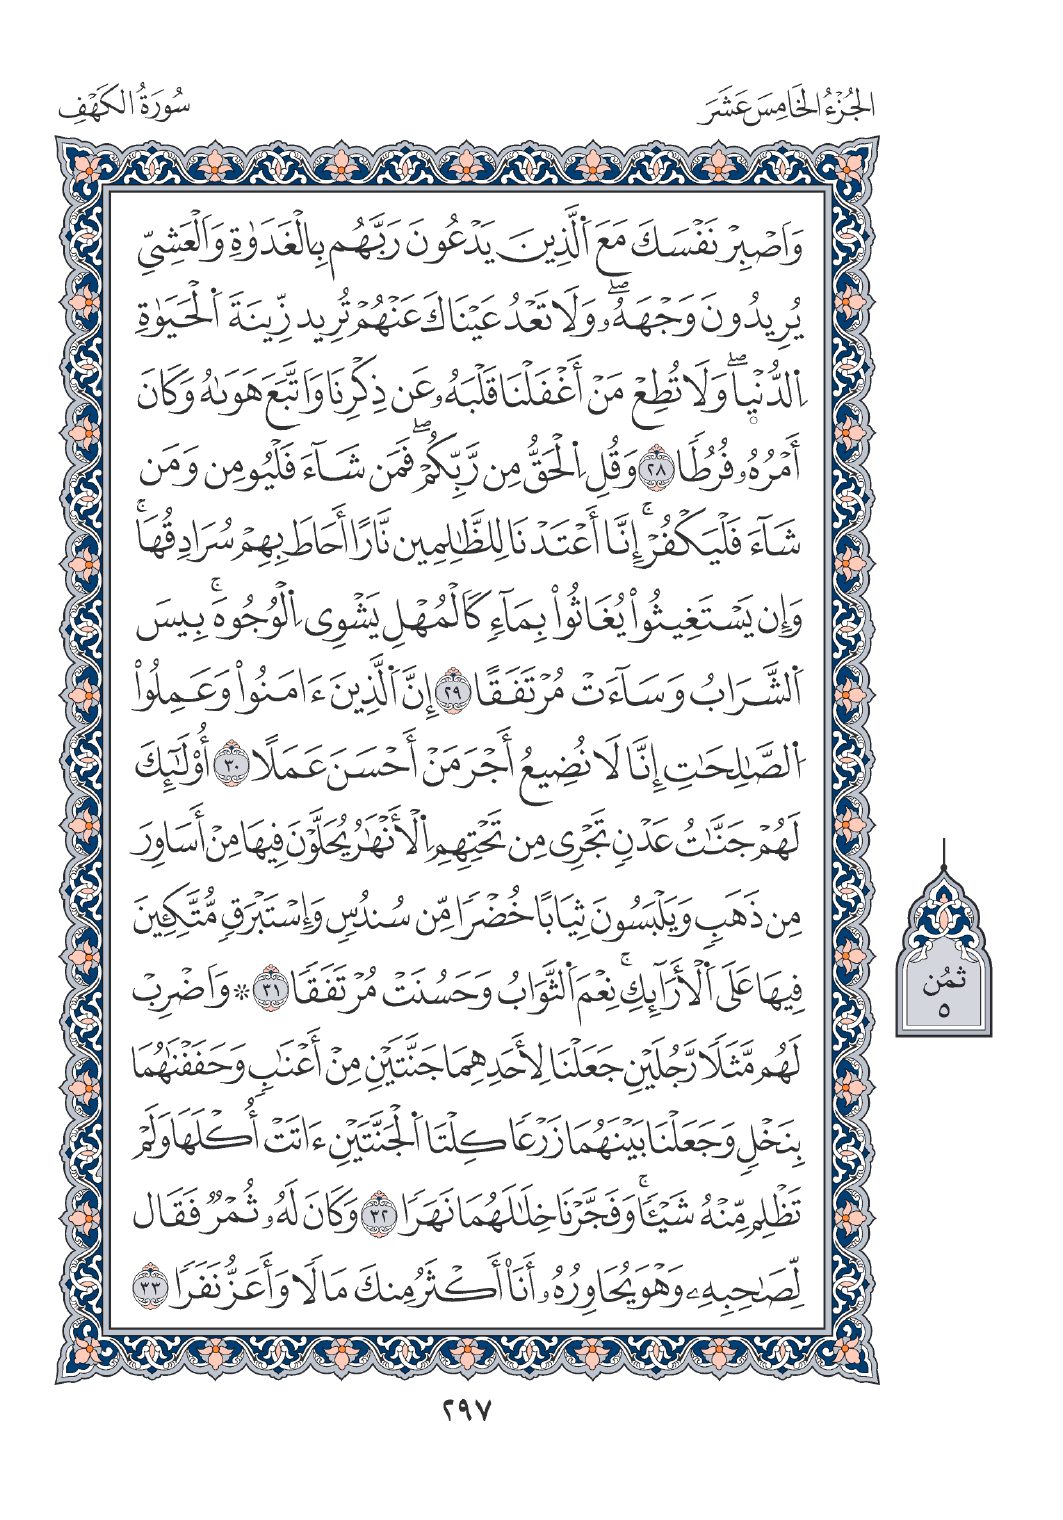 الجُزْءُ الخَامِسَ عَشَرَ
سُورَةُ الكَهْفِ
وَاَصْبِرْ نَفْسَكَ مَعَ اَ۬لَّذِينَ يَدْعُونَ رَبَّهُم بِالْغَدَوٰةِ وَالْعَشِيِّ
يُرِيدُونَ وَجْهَهُۥۖ وَلَا تَعْدُ عَيْنَاكَ عَنْهُمْ تُرِيد زِّينَةَ اَ۬لْحَيَوٰةِ
اِ۬لدُّنْي۪اۖ وَلَا تُطِعْ مَنْ أَغْفَلْنَا قَلْبَهُۥ عَن ذِكْرِنَا وَاَتَّبَعَ هَوَىٰهُ وَكَانَ
أَمْرُهُۥ فُرُطًا ٢٨ وَقُلِ اِ۬لْحَقُّ مِن رَّبِّكُمْۖ فَمَن شَآءَ فَلْيُومِن وَمَن
شَآءَ فَلْيَكْفُرْۚ إِنَّا أَعْتَدْنَا لِلظَّٰلِمِين نَّارًا أَحَاطَ بِهِمْ سُرَادِقُهَاۚ
وَإِن يَسْتَغِيثُواْ يُغَاثُواْ بِمَآءٍ كَالْمُهْلِ يَشْوِي اِ۬لْوُجُوهَۚ بِيسَ
اَ۬لشَّرَابُ وَسَآءَتْ مُرْتَفَقًا ٢٩ إِنَّ اَ۬لَّذِينَ ءَامَنُواْ وَعَمِلُواْ
اُ۬لصَّٰلِحَٰتِ إِنَّا لَا نُضِيعُ أَجْرَ مَنْ أَحْسَنَ عَمَلًا ٣٠ أُوْلَٰٓئِكَ
لَهُمْ جَنَّٰتُ عَدْنٍ تَجْرِي مِن تَحْتِهِمِ اِ۬لْأَنْهَٰرُ يُحَلَّوْنَ فِيهَا مِنْ أَسَاوِرَ
مِن ذَهَبٍ وَيَلْبَسُونَ ثِيَابًا خُضْرًا مِّن سُندُسٍ وَإِسْتَبْرَقٍ مُّتَّكِـِٔينَ
فِيهَا عَلَى اَ۬لْأَرَآئِكِۚ نِعْمَ اَ۬لثَّوَابُ وَحَسُنَتْ مُرْتَفَقًا ٣١ ۞ وَاَضْرِبْ
لَهُم مَّثَلًا رَّجُلَيْنِ جَعَلْنَا لِأَحَدِهِمَا جَنَّتَيْنِ مِنْ أَعْنَٰبٍ وَحَفَفْنَٰهُمَا
بِنَخْلٍ وَجَعَلْنَا بَيْنَهُمَا زَرْعًا كِلْتَا اَ۬لْجَنَّتَيْنِ ءَاتَتْ أُكْلَهَا وَلَمْ
تَظْلِم مِّنْهُ شَيْـًٔاۚ وَفَجَّرْنَا خِلَٰلَهُمَا نَهَرًا ٣٢ وَكَانَ لَهُۥ ثُمْرٌ فَقَال
لِّصَٰحِبِهِۦ وَهْوَ يُحَاوِرُهُۥ أَنَا۠ أَكْثَرُ مِنكَ مَالًا وَأَعَزُّ نَفَرًا ٣٣
ثمُن
٥
٢٩٧